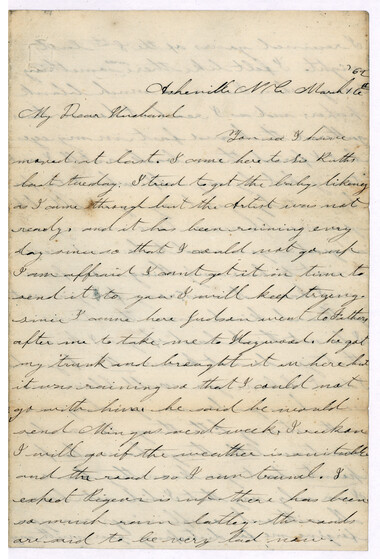 '64
Asheville N.C. March 16th
My Dear Husband
You see I have
moved at last. I came here to Sis Ruths
last tuesday. I tried to get the babys likeness
as I came through but the Artist was not
ready. and it has been raining every
day since so that I could not go up
I am affraid I cant get it in time to
send it to you. I will keep trying.
since I came here Judson went to Fathers
after me to take me to Haywood. he got
my trunk and braught it in here but
it was raining so that I could not
go with him. he said he would
send next week. I reckon
I will go if the weather is suitable
and the road so I can travel. I
expect the river is up there has been
so much rain latley. the roads
are said to be very bad now.